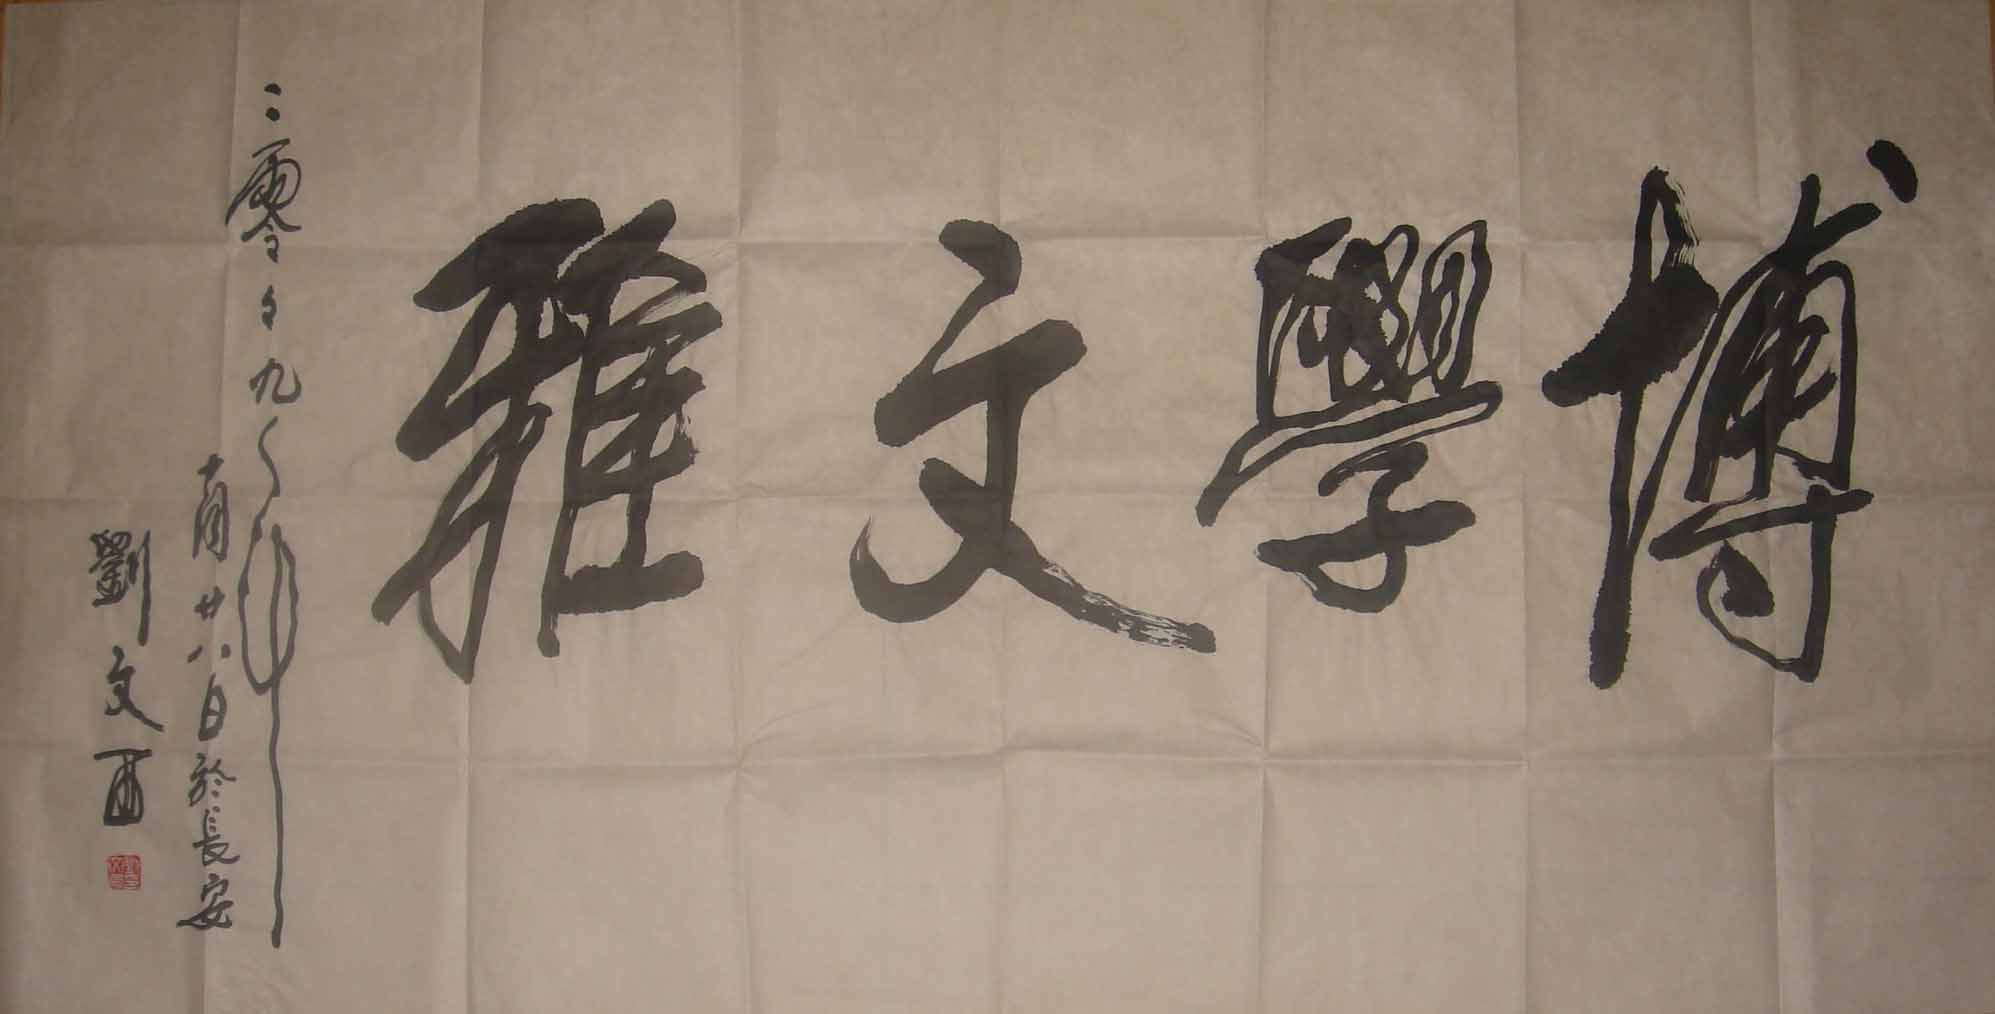 博學文雅
二零零九年
十月廿八日於長安
劉文西